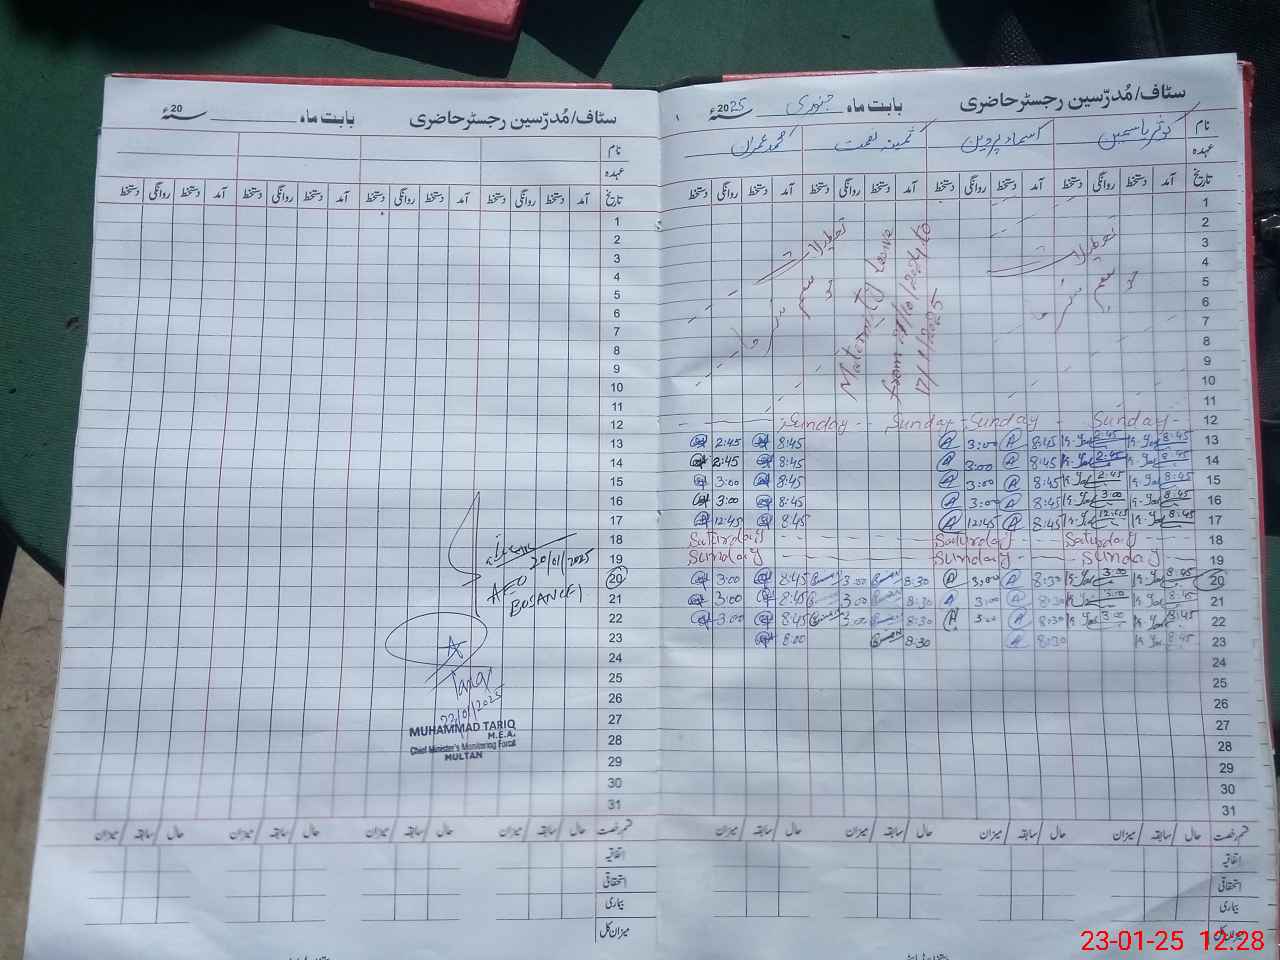 سٹاف/مُدرّسین رجسٹرحاضری بابت ماہ جنوری 2025ء
نام کوثر یاسمین اسماء پروین ثمینہ نعمت محمد عمران
عہدہ
تاریخ آمد دستخط روانگی دستخط آمد دستخط روانگی دستخط آمد دستخط روانگی دستخط آمد دستخط روانگی دستخط
1
2
3
4
5
6
7
8
9
10
11
تعطیلات
موسم سرما
Maternity leave
from 21/10/2024 to
17/1/2025
تعطیلات
موسم سرما
12 Sunday Sunday Sunday Sunday
13 8:45 2:45 8:45 3:00 8:45 2:45
14 8:45 2:45 8:45 3:00 8:45 2:45
15 8:45 2:45 8:45 3:00 8:45 3:00
16 8:45 3:00 8:45 3:00 8:45 3:00
17 8:45 12:45 8:45 12:45 8:45 12:45
18 Saturday Saturday Saturday
19 Sunday Sunday Sunday
20 8:45 3:00 8:30 3:00 8:30 3:00 8:45 3:00
21 8:45 3:00 8:30 3:00 8:30 3:00 8:45 3:00
22 8:45 3:00 8:30 3:00 8:30 3:00 8:45 3:00
23 8:45 8:30 8:30 8:00
24
25
26
27
28
29
30
31
قسم رخصت حال / سابقہ / میزان حال / سابقہ / میزان حال / سابقہ / میزان حال / سابقہ / میزان
اتفاقیہ
استحقاقی
بیماری
میزان کل
سٹاف/مُدرّسین رجسٹرحاضری بابت ماہ 20ء
نام
عہدہ
تاریخ آمد دستخط روانگی دستخط آمد دستخط روانگی دستخط آمد دستخط روانگی دستخط آمد دستخط روانگی دستخط
1
2
3
4
5
6
7
8
9
10
11
12
13
14
15
16
17
18
19
20
21
22
23
24
25
26
27
28
29
30
31
20/01/2025
AEO
BOSAN(F)
Tariq
22/01/2025
MUHAMMAD TARIQ
M.E.A.
Chief Minister's Monitoring Force
MULTAN
قسم رخصت حال / سابقہ / میزان حال / سابقہ / میزان حال / سابقہ / میزان حال / سابقہ / میزان
اتفاقیہ
استحقاقی
بیماری
میزان کل
23-01-25 12:28